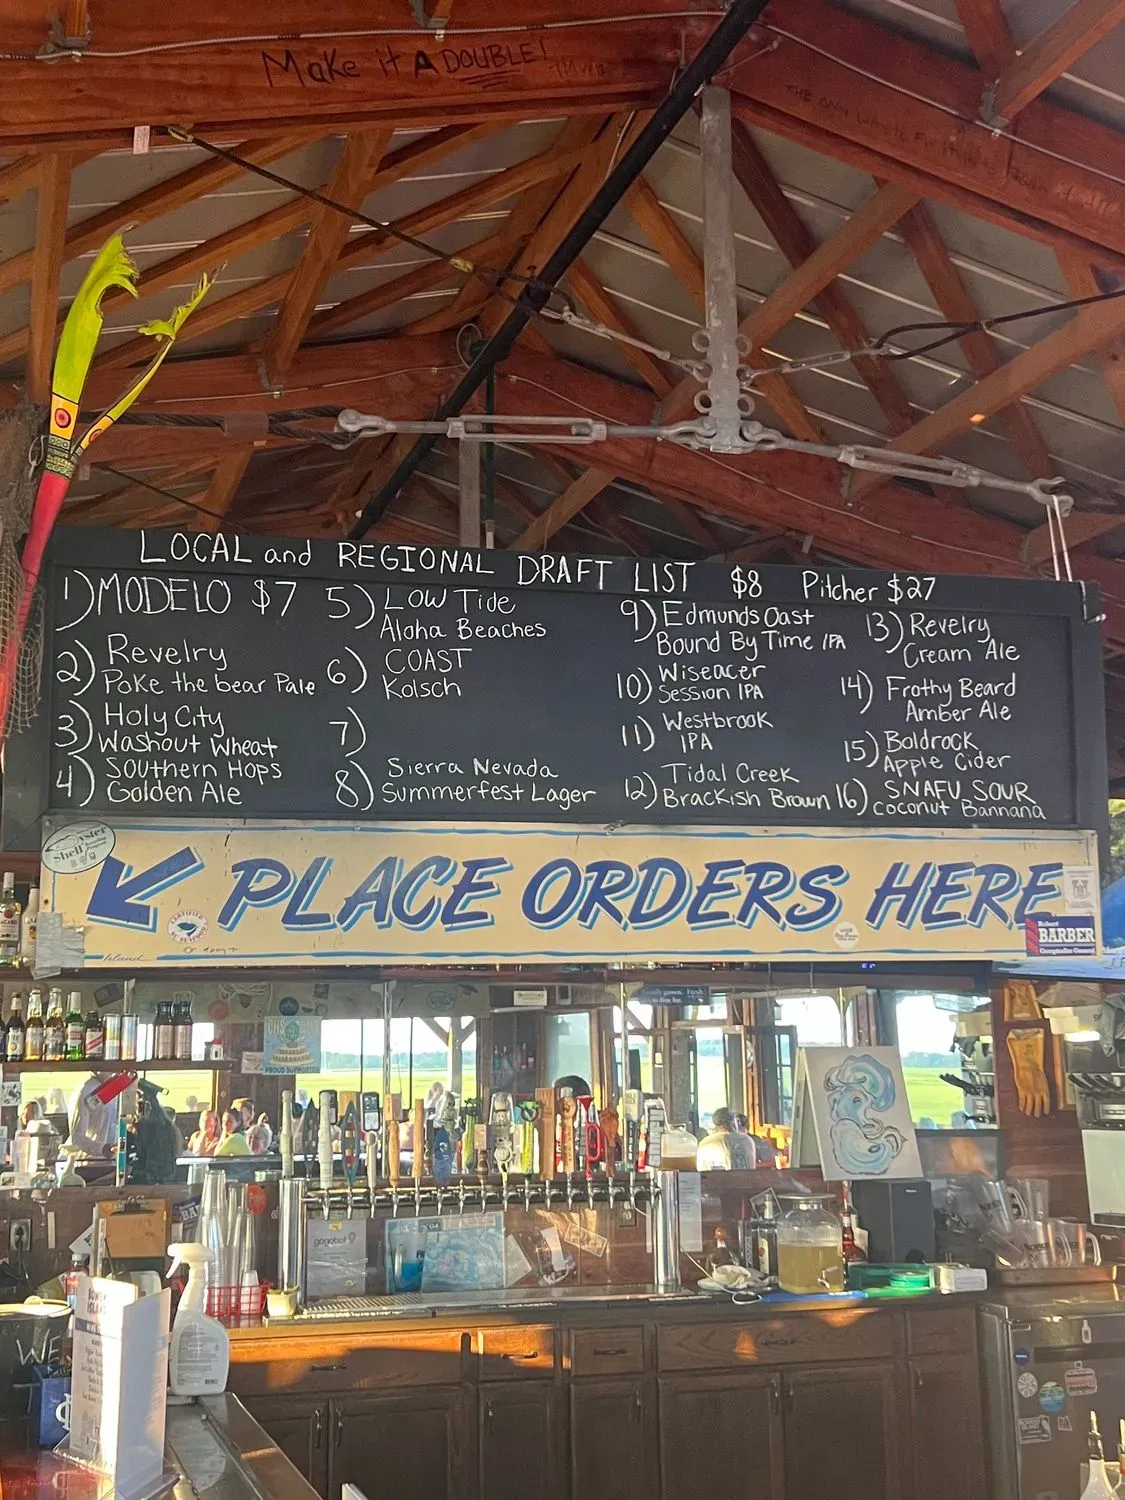 Make it A DOUBLE!
THE ONLY WAY
LOCAL and REGIONAL DRAFT LIST $8 Pitcher $27
1) MODELO $7
2) Revelry
Poke the bear Pale
3) Holy City
Washout Wheat
4) Southern Hops
Golden Ale
5) LOW Tide
Aloha Beaches
6) COAST
Kolsch
7)
8) Sierra Nevada
Summerfest Lager
9) Edmunds Oast
Bound By Time IPA
10) Wiseacer
Session IPA
11) Westbrook
IPA
12) Tidal Creek
Brackish Brown
13) Revelry
Cream Ale
14) Frothy Beard
Amber Ale
15) Boldrock
Apple Cider
16) SNAFU SOUR
Coconut Bannana
Oyster
Shell
PLACE ORDERS HERE
CERTIFIED
SC SEAFOOD
Island
Robert
BARBER
Comptroller General
CHS
PROUD SUPPORTER
gogobot
WE